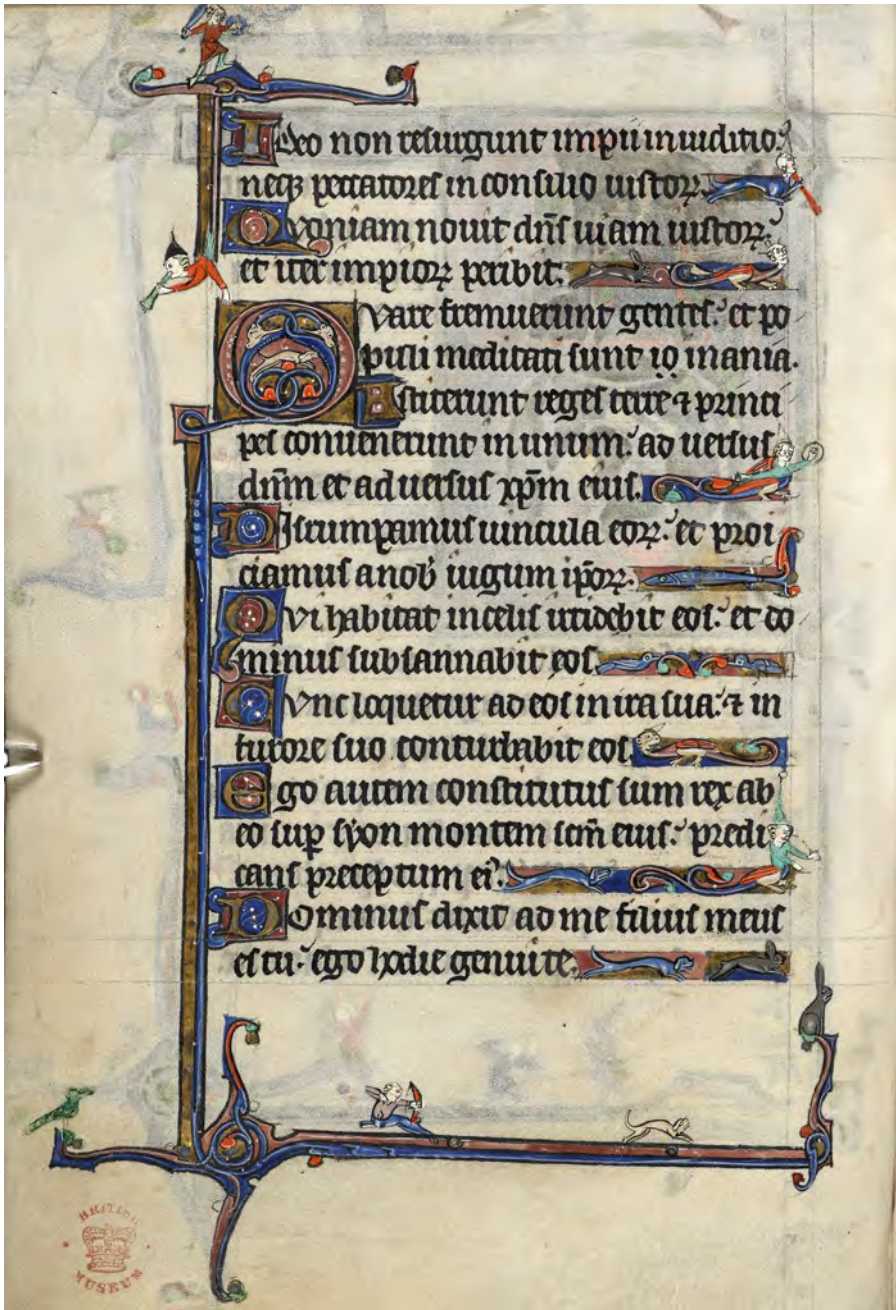 Ideo non resurgunt impii in iuditio:
neqꝫ peccatores in consilio iustoꝝ.
Qvoniam nouit dn̄s uiam iustoꝝ:
et iter impioꝝ peribit.
Qvare fremuerunt gentes: et po
puli meditati sunt īō inania.
Astiterunt reges terre ⁊ princi
pes conuenerunt in unum: ad uersus
dn̄m et aduersus xp̄m eius.
Disrumpamus uincula eoꝝ: et proi
ciamus a nob̄ iugum ip̄oꝝ.
Qvi habitat in celis irridebit eos: et do
minus subsannabit eos.
Tvnc loquetur ad eos in ira sua: ⁊ in
furore suo conturbabit eos.
Ego autem constitutus sum rex ab
eo sup̄ syon montem sc̄m eius: predi
cans preceptum ei᾽.
Dominus dixit ad me filius meus
es tu: ego hodie genui te.
BRITISH
MUSEUM